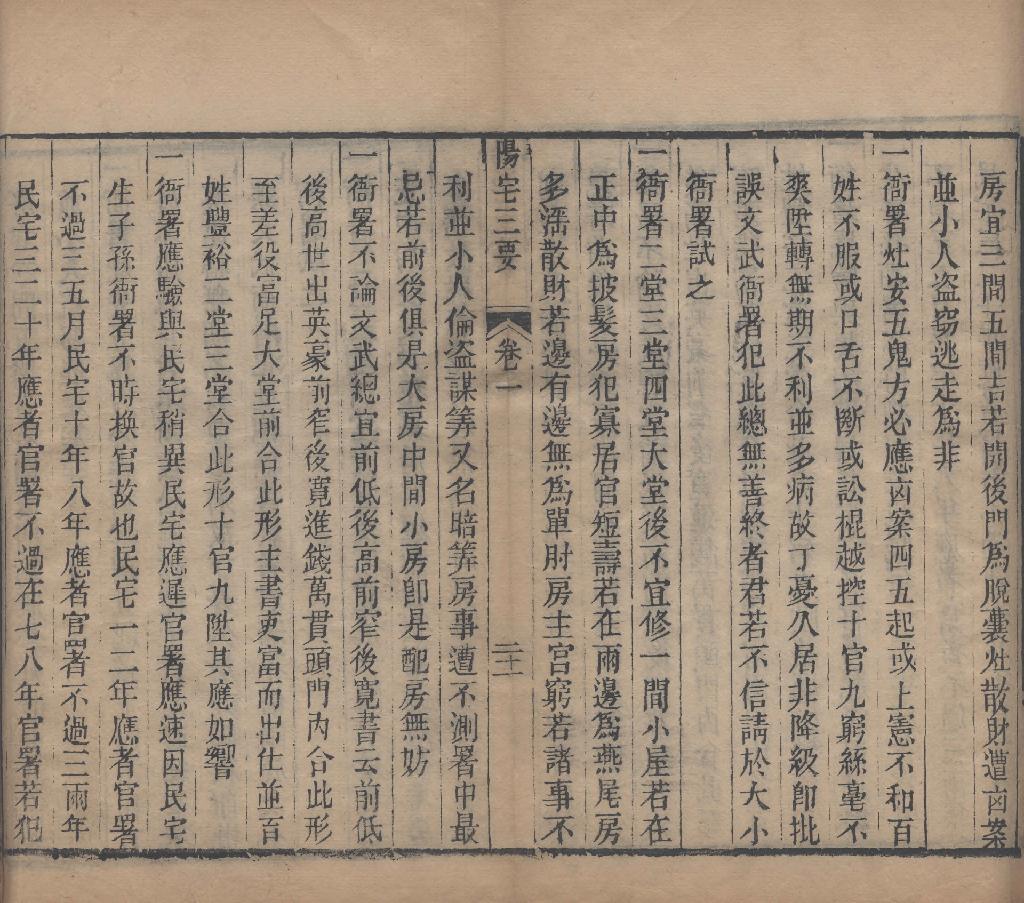 房宜三間五間吉若開後門為脫囊灶散財遭㓙案
並小人盜竊逃走為非
一衙署灶安五鬼方必應㓙案四五起或上憲不和百
姓不服或口舌不斷或訟棍越控十官九窮絲毫不
爽陞轉無期不利並多病故丁憂久居非降級卽批
誤文武衙署犯此總無善終者君若不信請於大小
衙署試之
一衙署二堂三堂四堂大堂後不宜修一間小屋若在
正中為披髮房犯寡居官短壽若在兩邊為燕尾房
多滛散財若邊有邊無為單肘房主官窮若諸事不
陽宅三要 卷一 二十
利並小人倫盗謀筭又名暗筭房事遭不測署中最
忌若前後俱是大房中間小房卽是配房無妨
一衙署不論文武總宜前低後高前窄後寬書云前低
後高世出英豪前窄後寬進錢萬貫頭門內合此形
至差役富足大堂前合此形主書吏富而出仕並百
姓豐裕二堂三堂合此形十官九陞其應如響
一衙署應驗與民宅稍異民宅應遲官署應速因民宅
生子孫衙署不時換官故也民宅一二年應者官署
不過三五月民宅十年八年應者官署不過三兩年
民宅三二十年應者官署不過在七八年官署若犯